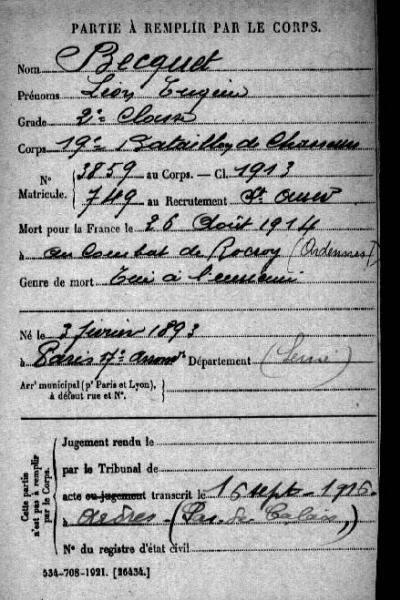 PARTIE À REMPLIR PAR LE CORPS.
Nom Becquet
Prénoms Léon Eugène
Grade 2e Classe
Corps 19e Bataillon de Chasseurs
N° Matricule. { 3859 au Corps. — Cl. 1913
749 au Recrutement St Omer
Mort pour la France le 26 Août 1914
à au combat de Rocroy (Ardennes)
Genre de mort Tué à l'ennemi
Né le 3 février 1893
à Paris 17e arrondt Département (Seine)
Arrt municipal (pr Paris et Lyon), à défaut rue et N°.
Cette partie n'est pas à remplir par le Corps.
Jugement rendu le
par le Tribunal de
acte ou jugement transcrit le 15 sept. 1915
à Ardres (Pas-de-Calais)
N° du registre d'état civil
534-708-1921. [26434.]